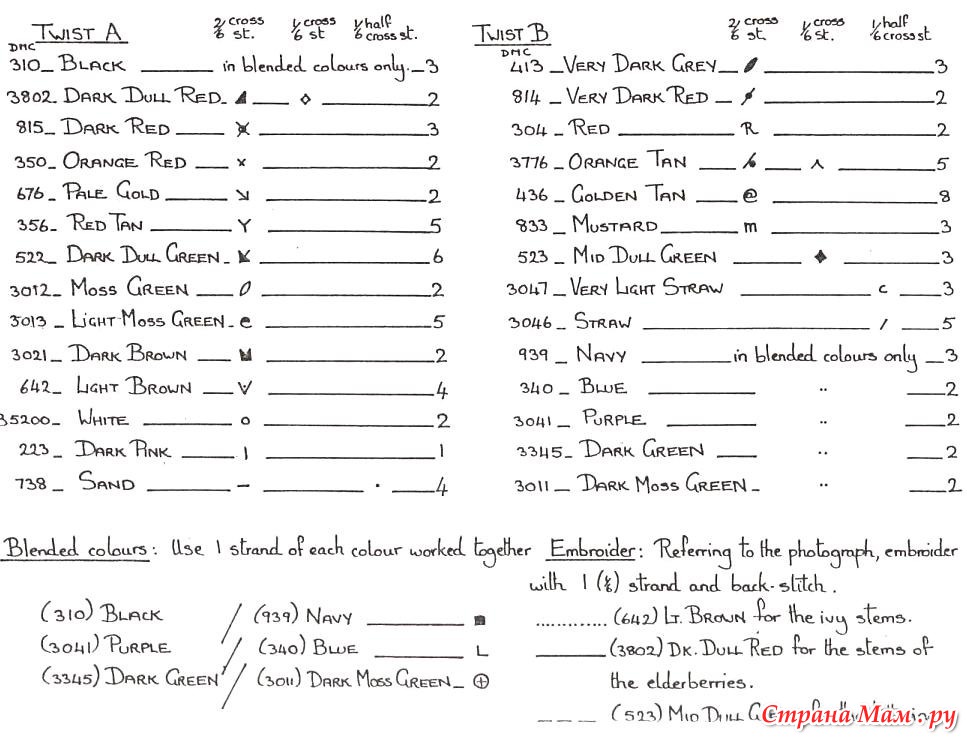 TWIST A 2/6 cross st. 1/6 cross st 1/6 half cross st.
DMC
310_ BLACK in blended colours only._3
3802_ DARK DULL RED_ 2
815_ DARK RED 3
350_ ORANGE RED x 2
676_ PALE GOLD 2
356_ RED TAN Y 5
522_ DARK DULL GREEN_ 6
3012_ MOSS GREEN 2
3013_ LIGHT MOSS GREEN_ e 5
3021_ DARK BROWN 2
642_ LIGHT BROWN 4
35200_ WHITE o 2
223_ DARK PINK | 1
738_ SAND – · 4
TWIST B 2/6 cross st. 1/6 cross st. 1/6 half cross st
DMC
413_ VERY DARK GREY_ 3
814_ VERY DARK RED_ 2
304_ RED R 2
3776_ ORANGE TAN 5
436_ GOLDEN TAN @ 8
833_ MUSTARD m 3
523_ MID DULL GREEN ◆ 3
3047_ VERY LIGHT STRAW c 3
3046_ STRAW / 5
939_ NAVY in blended colours only _3
340_ BLUE .. 2
3041_ PURPLE .. 2
3345_ DARK GREEN .. 2
3011_ DARK MOSS GREEN_ .. 2
Blended colours: Use 1 strand of each colour worked together
(310) BLACK / (939) NAVY ■
(3041) PURPLE / (340) BLUE L
(3345) DARK GREEN / (3011) DARK MOSS GREEN_ ⊕
Embroider: Referring to the photograph, embroider
with 1 (1/6) strand and back-stitch.
............. (642) LT. BROWN for the ivy stems.
(3802) DK. DULL RED for the stems of
the elderberries.
_ _ _ (523) MID DULL
Страна Мам.ру